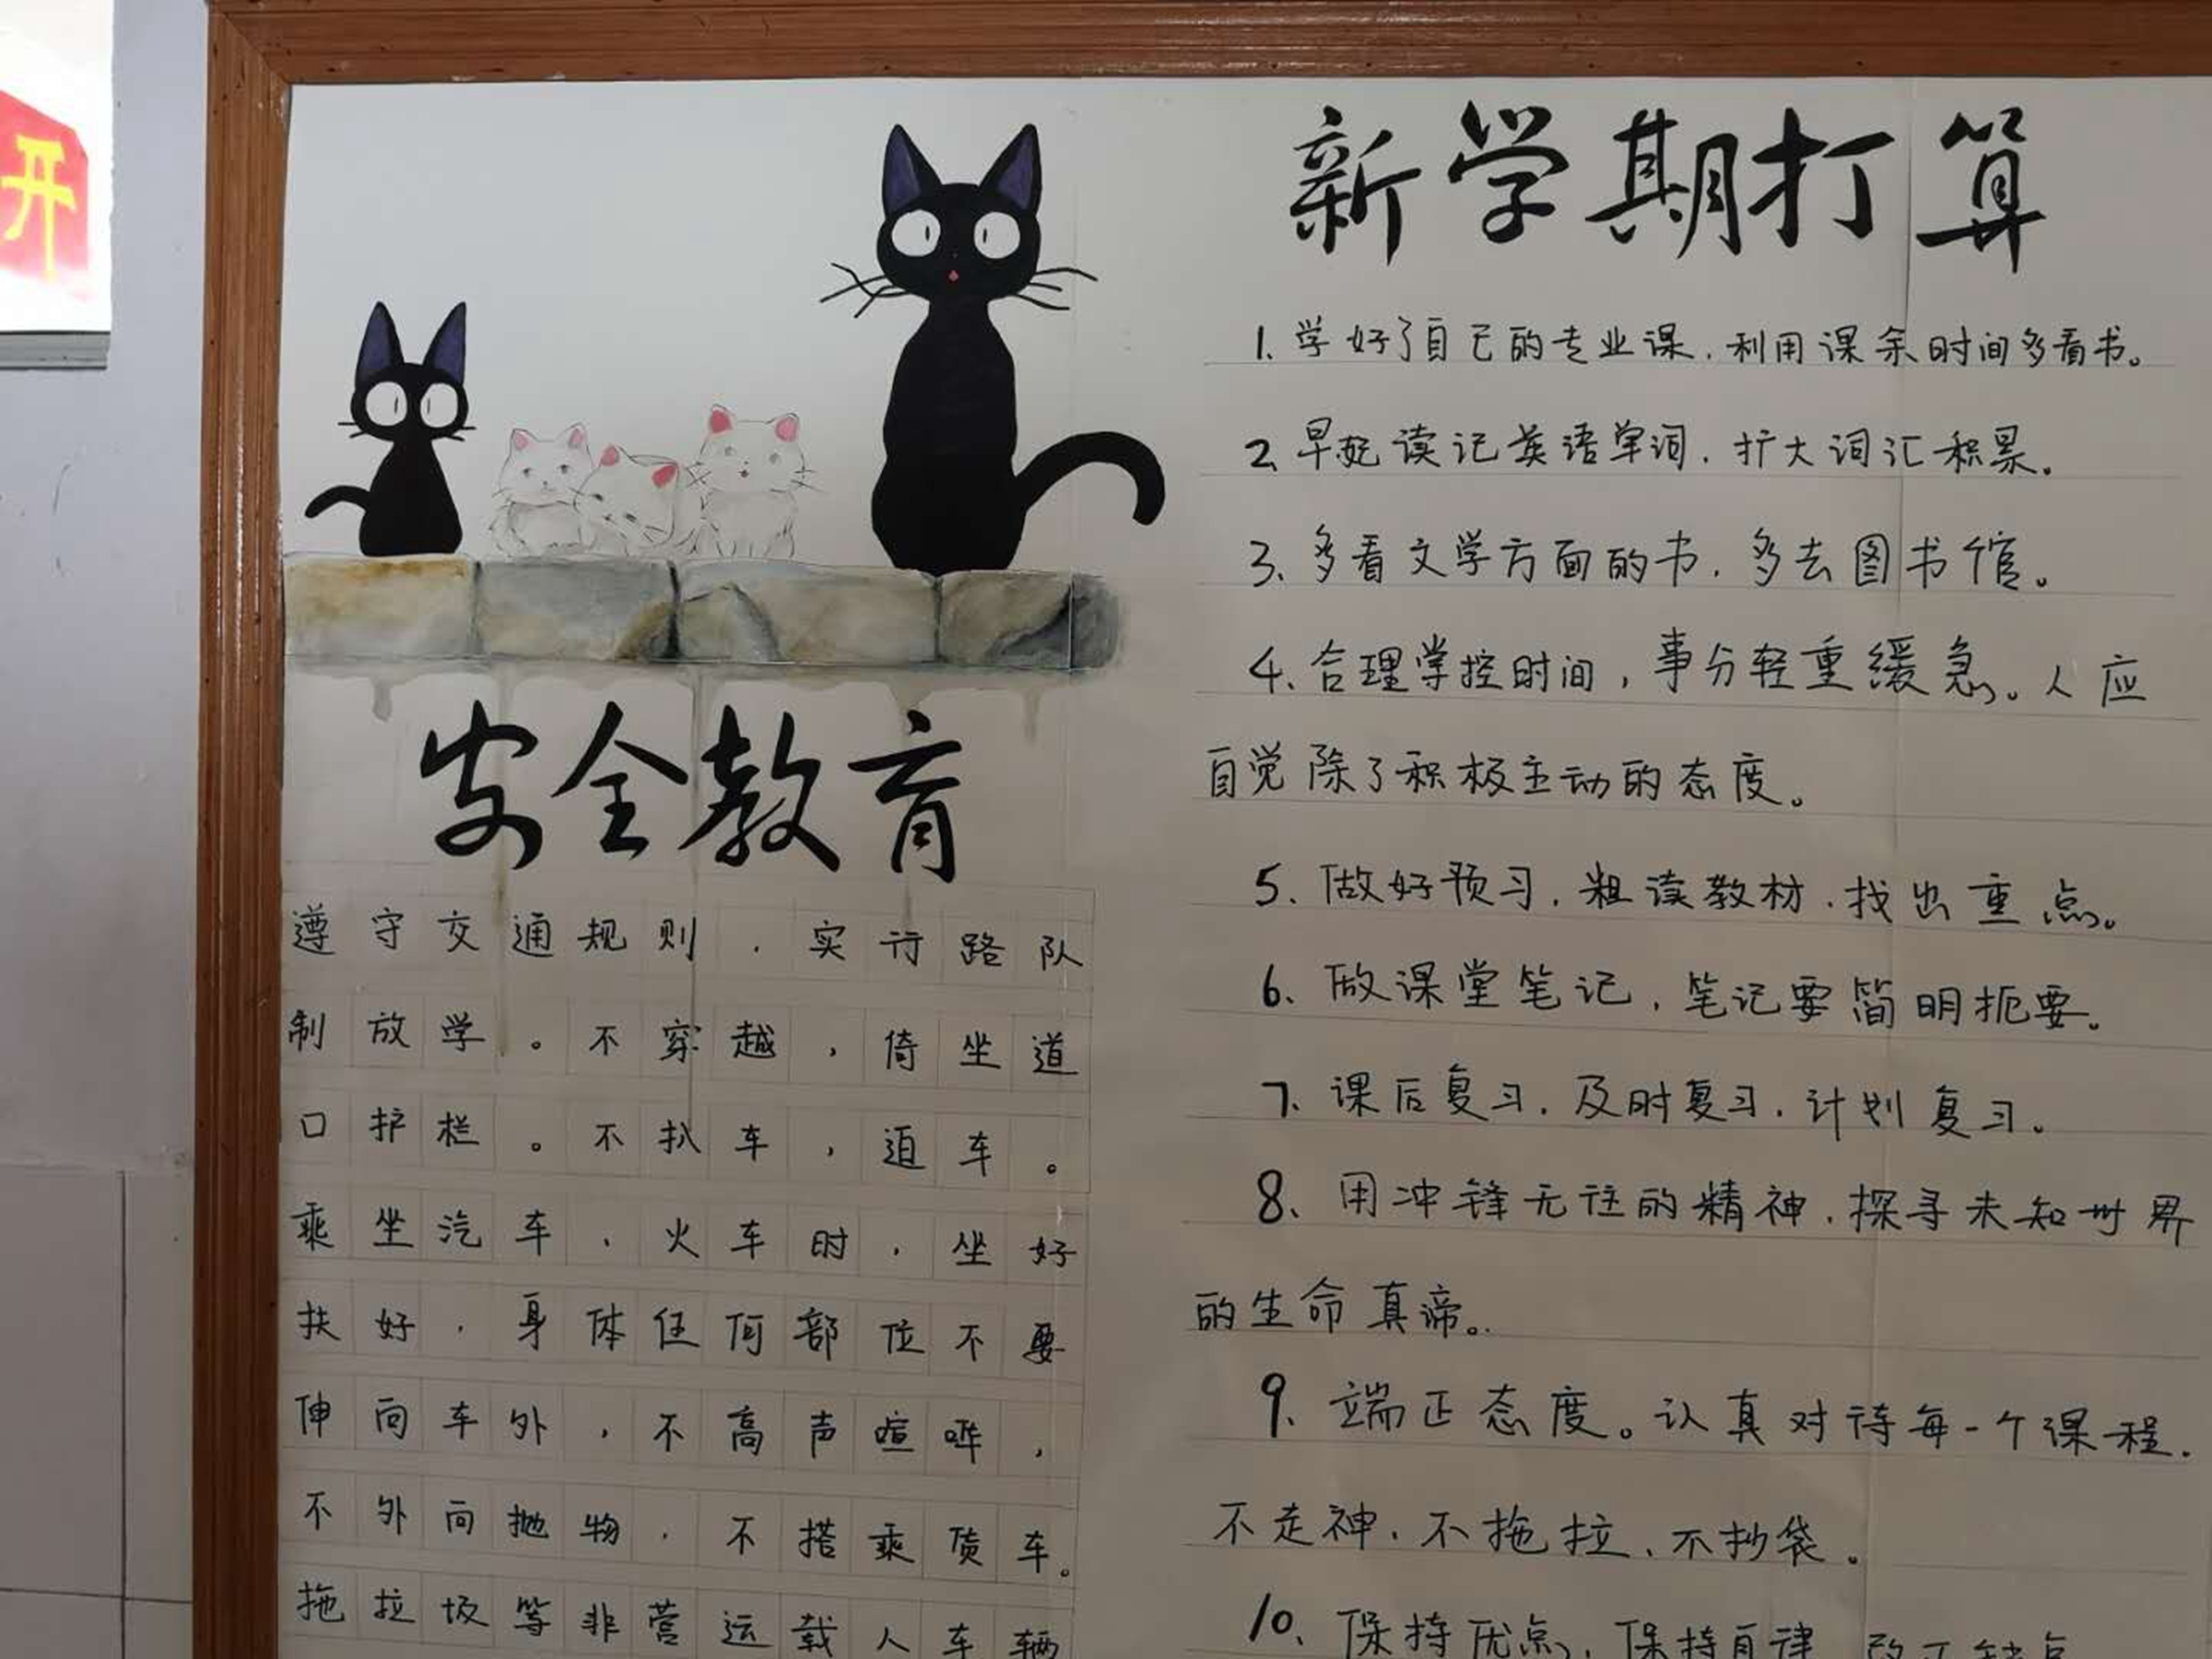 开
安全教育
遵守交通规则，实行路队
制放学。不穿越，倚坐道
口护栏。不扒车，追车。
乘坐汽车，火车时，坐好
扶好，身体任何部位不要
伸向车外，不高声喧哗，
不外向抛物，不搭乘货车。
拖拉圾等非营运载人车辆
新学期打算
1、学好了自己的专业课，利用课余时间多看书。
2、早起读记英语单词，扩大词汇积累。
3、多看文学方面的书，多去图书馆。
4、合理掌控时间，事分轻重缓急。人应
自觉除了积极主动的态度。
5、做好预习，粗读教材，找出重点。
6、做课堂笔记，笔记要简明扼要。
7、课后复习，及时复习，计划复习。
8、用冲锋无往的精神，探寻未知世界
的生命真谛。
9、端正态度。认真对待每一个课程，
不走神、不拖拉、不抄袋。
10、保持优点，保持自律